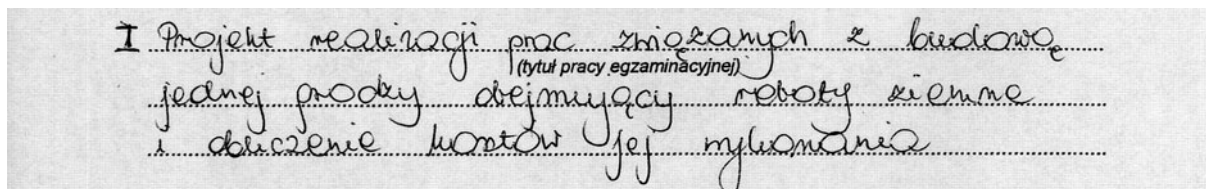 I Projekt realizacji prac związanych z budową
(tytuł pracy egzaminacyjnej)
jednej grodzy obejmujący roboty ziemne
i obliczenie kosztów jej wykonania